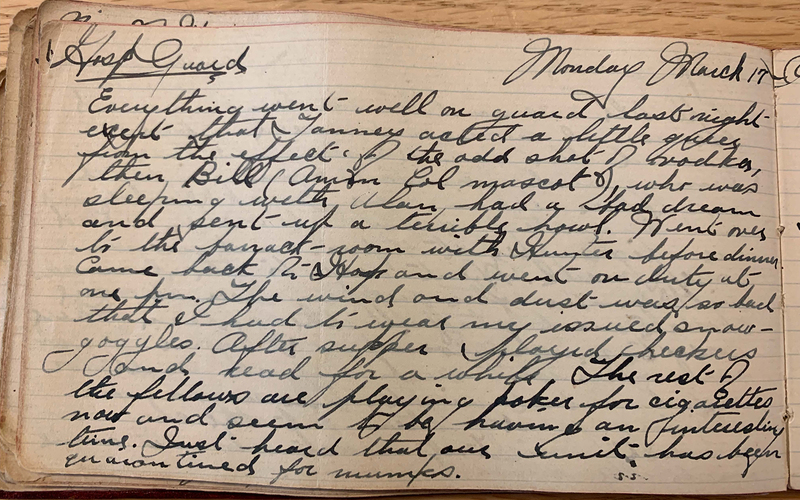 Hosp Guard Monday March 17
Everything went well on guard last night
exept that Tanner acted a little queer
from the effect of the odd shot of vodka,
then Bill (Amm Col mascot) who was
sleeping with Alan had a bad dream
and sent up a terrible howl. Went over
to the barrack-room with Hunter before dinner.
Came back to Hosp and went on duty at
one p.m. The wind and dust was so bad
that I had to wear my issued snow-
goggles. After supper played checkers
and read for a while. The rest of
the fellows are playing poker for cigarettes
now and seem to be having an interesting
time. Just heard that our unit has been
quarantined for mumps.